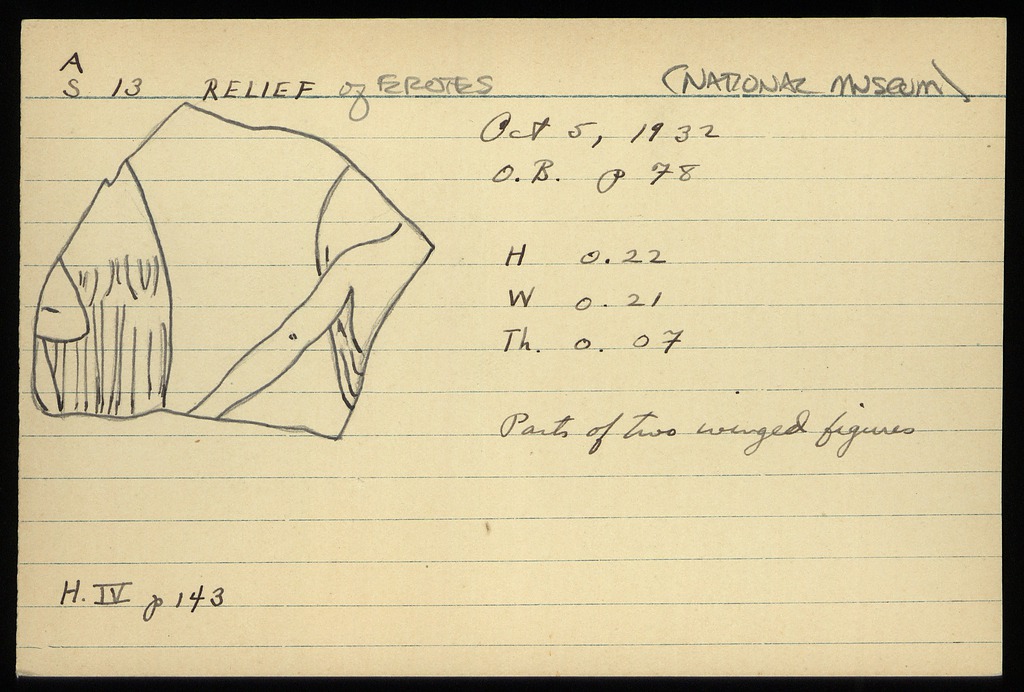 A
S 13 RELIEF of EROTES (NATIONAL MUSEUM)
Oct 5, 1932
O.B. p 78
H 0.22
W 0.21
Th. 0.07
Parts of two winged figures
H. IV p 143